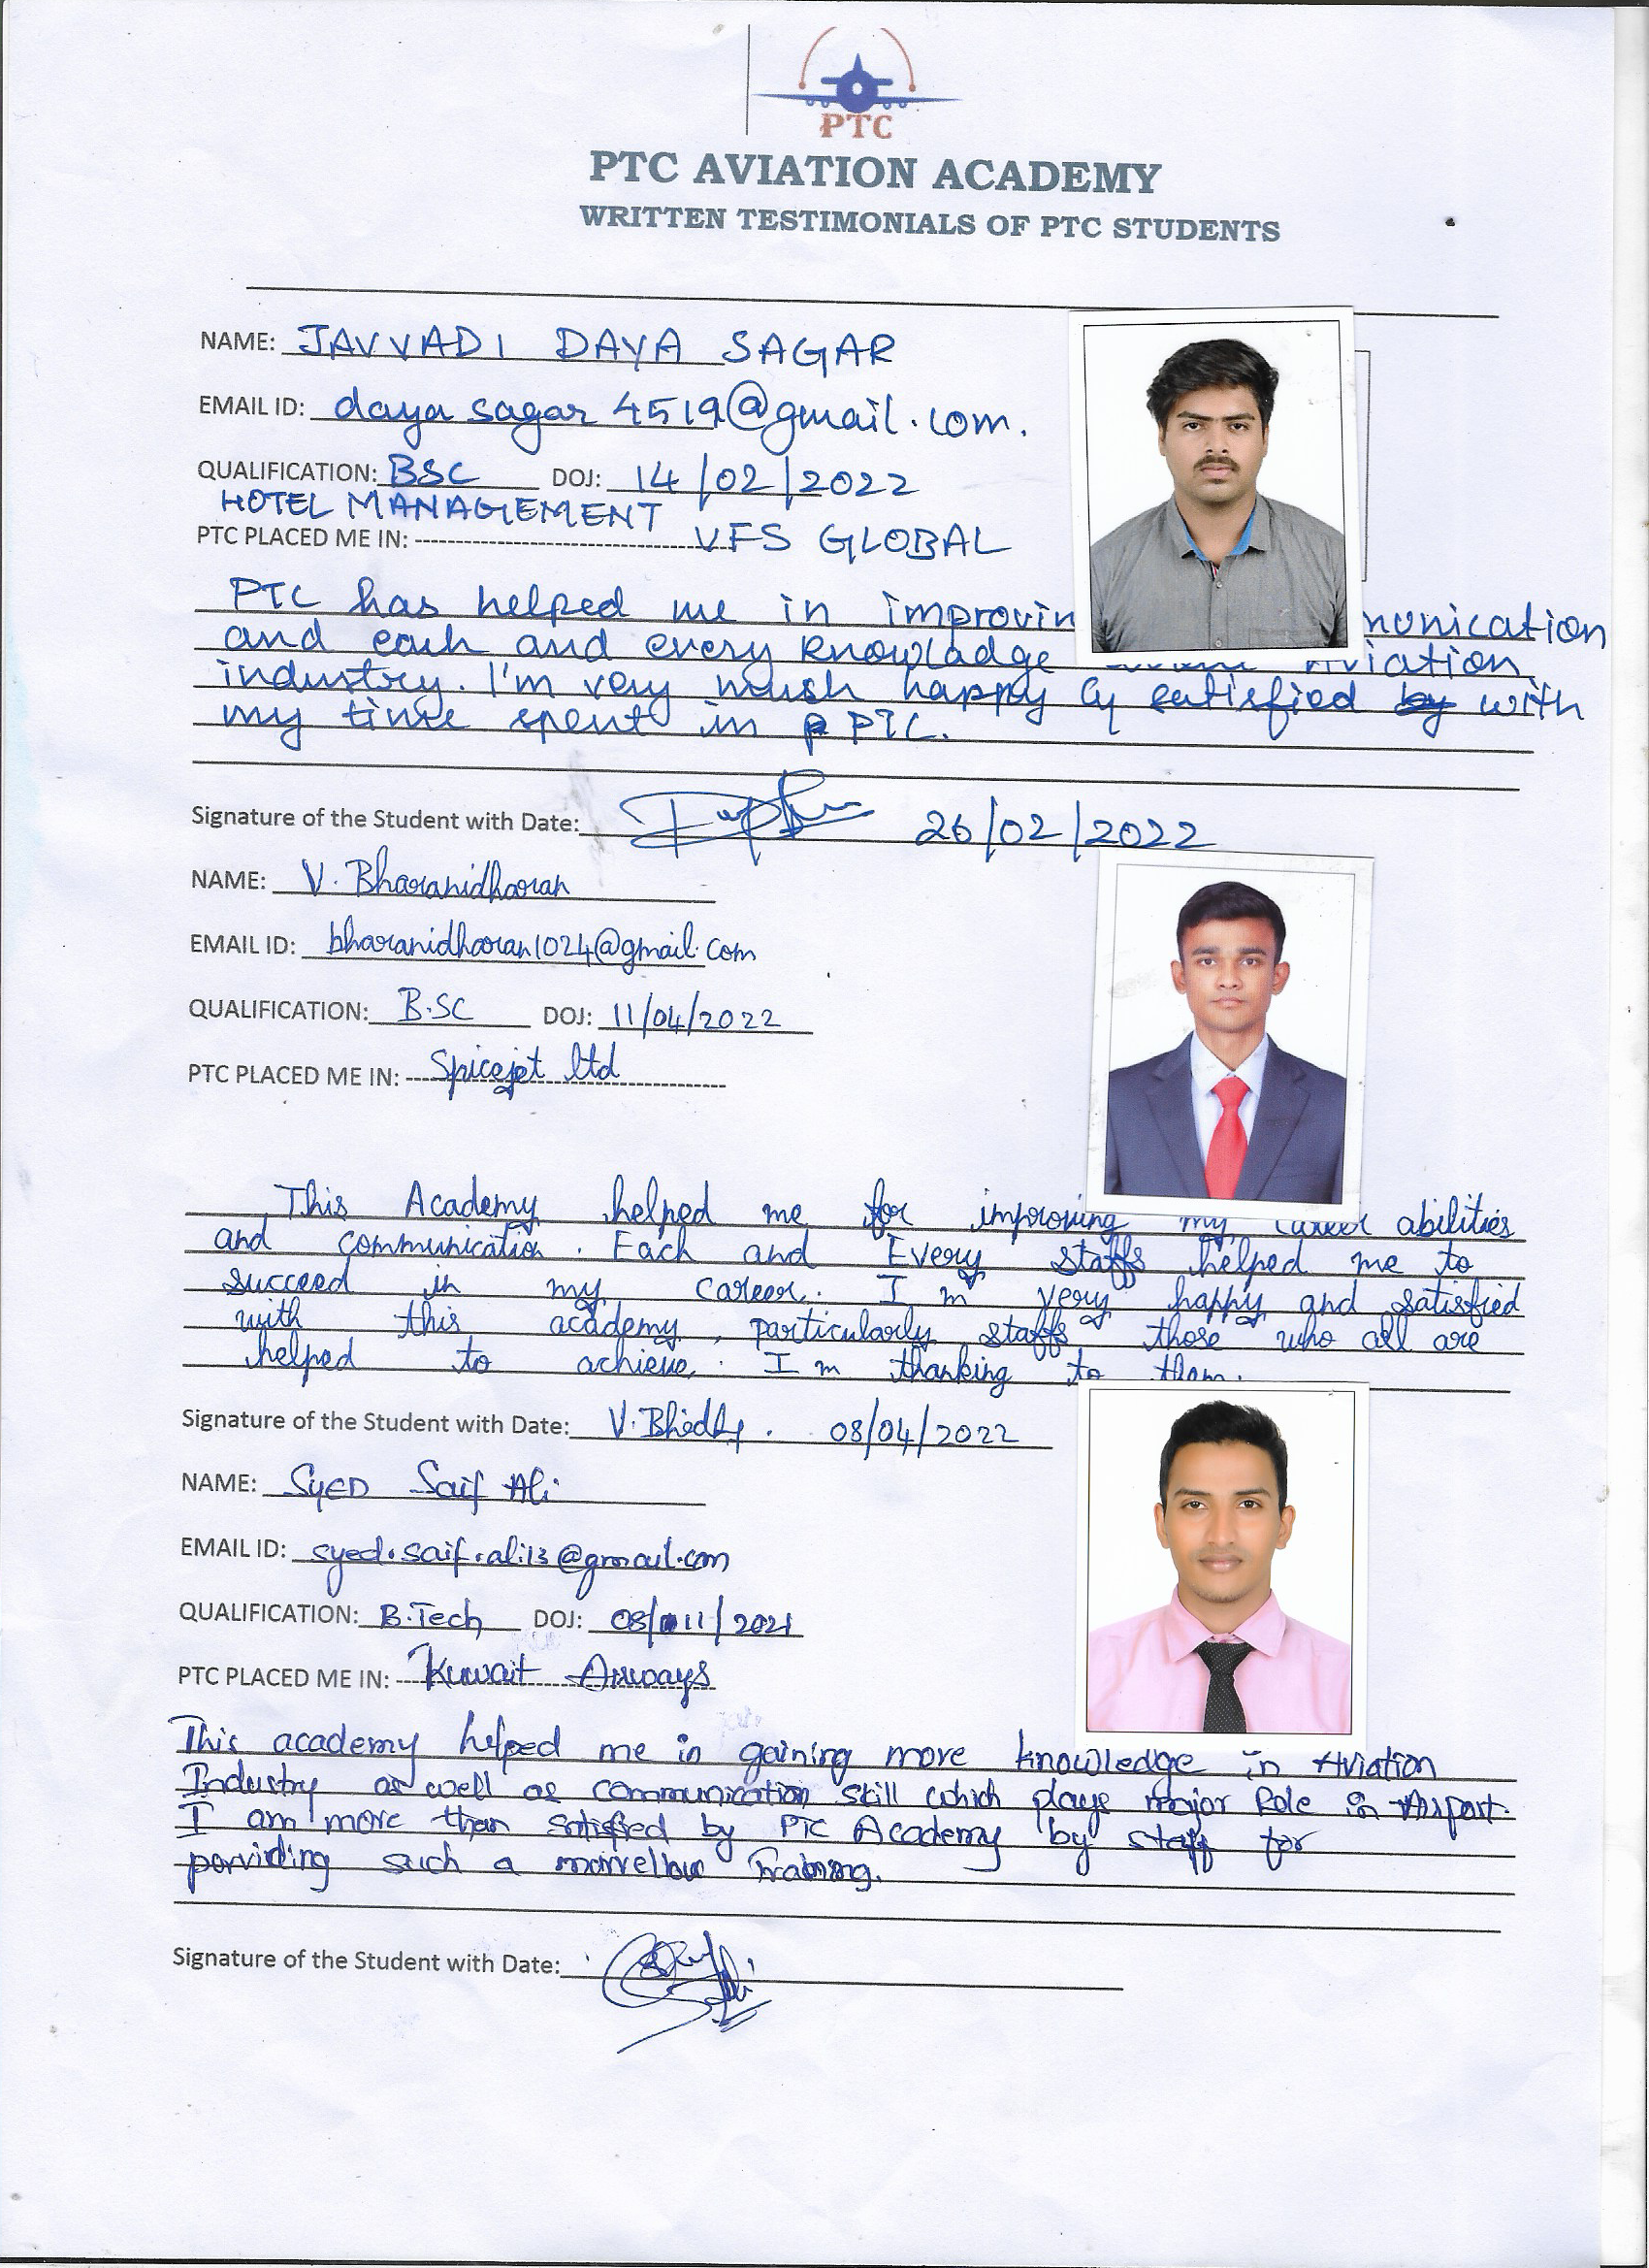 PTC
PTC AVIATION ACADEMY
WRITTEN TESTIMONIALS OF PTC STUDENTS
NAME: JAVVADI DAYA SAGAR
EMAIL ID: daya sagar 4519@gmail.com.
QUALIFICATION: BSC DOJ: 14/02/2022
HOTEL MANAGEMENT
PTC PLACED ME IN: VFS GLOBAL
PTC has helped me in improvin munication
and each and every knowladge Aviation
industry. I'm very mush happy & satisfied by with
my time spent in P PTC.
Signature of the Student with Date: 26/02/2022
NAME: V. Bharanidharan
EMAIL ID: bharanidharan1024@gmail.com
QUALIFICATION: B.SC DOJ: 11/04/2022
PTC PLACED ME IN: Spicejet ltd
This Academy helped me for improving my career abilities
and communication. Each and Every staffs helped me to
succeed in my career. I'm very happy and satisfied
with this academy, particularly staffs those who all are
helped to achieve. I m thanking to them.
Signature of the Student with Date: 08/04/2022
NAME: SYED Saif Ali
EMAIL ID: syed.saif.ali13@gmail.com
QUALIFICATION: B.Tech DOJ: 08/11/2021
PTC PLACED ME IN: Kuwait Airways
This academy helped me in gaining more knowledge in Aviation
Industry as well as communication skill which plays major Role in Airport.
I am more than satisfied by PTC Academy by staff for
porviding such a marvellous Training.
Signature of the Student with Date: